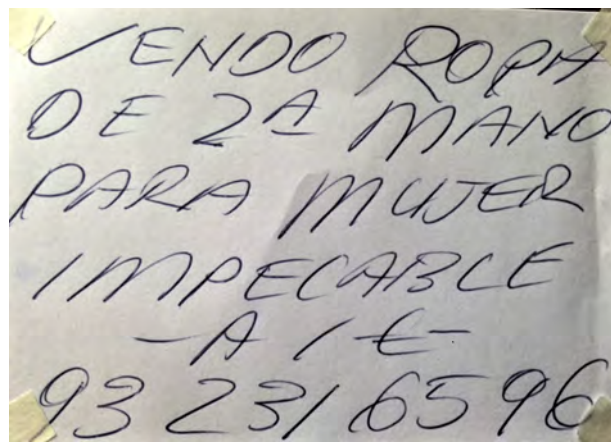 VENDO ROPA
DE 2ª MANO
PARA MUJER
IMPECABLE
-A 1€-
93 231 65 96